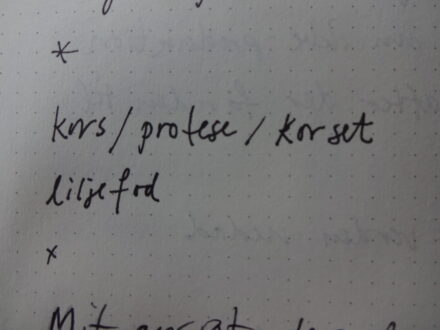 *
kors / protese / korset
liljefod
x
Mit